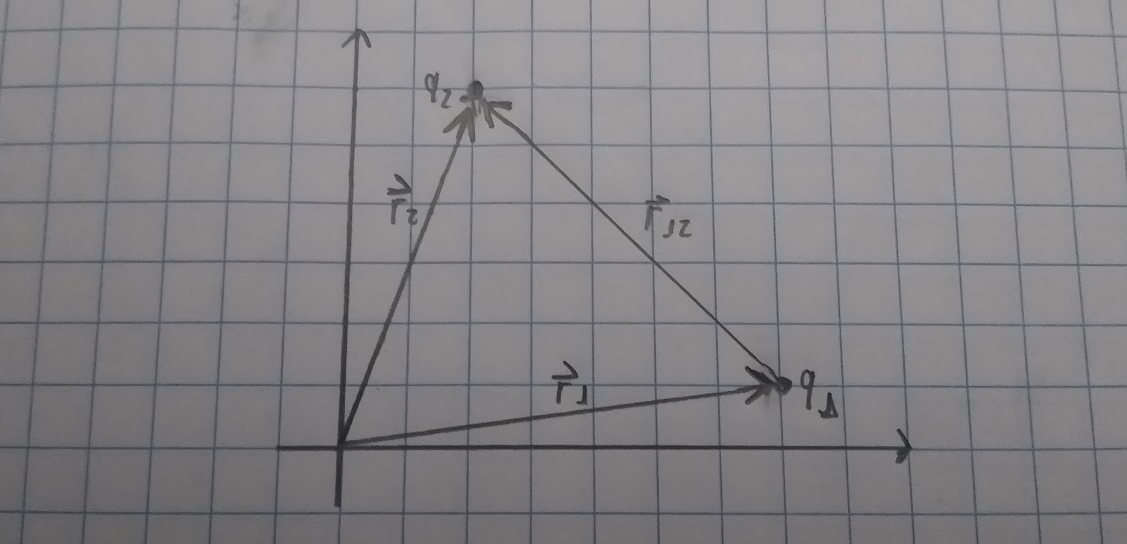 q₂
r⃗₂
r⃗₁₂
r⃗₁
q₁